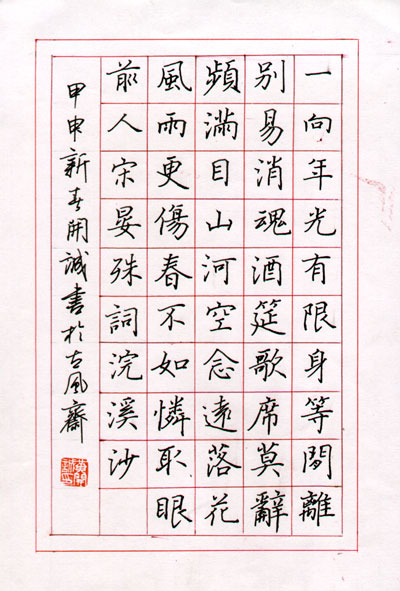 一向年光有限身等閒離
別易消魂酒筵歌席莫辭
頻滿目山河空念遠落花
風雨更傷春不如憐取眼
前人宋晏殊詞浣溪沙
甲申新春開誠書於古風齋